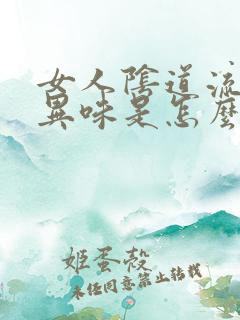 女人陰道流
異味是怎麼
姬蛋殼
未經同意禁止轉載